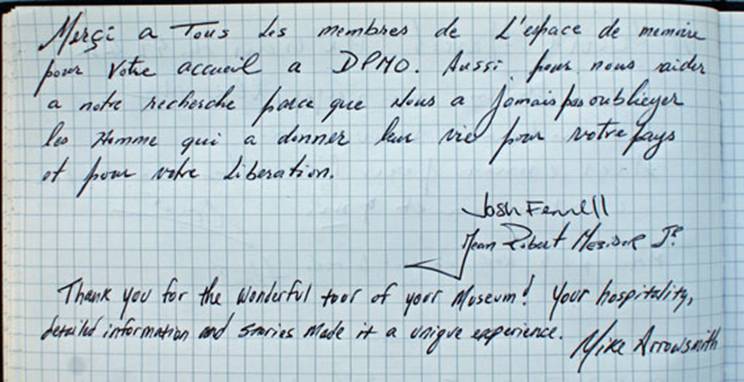 Merçi a Tous les membres de L'espace de memoire
pour Votre accueil a DPMO. Aussi pour nous aider
a notre recherche parce que Nous a jamais pas oublieyer
les Homme qui a donner leur vie pour votre pays
et pour votre Liberation.
Josh Fennell
Jean Robert Mesidor Jr.
Thank you for the wonderful tour of your Museum! Your hospitality,
detailed information and stories made it a unique experience.
Mike Arrowsmith